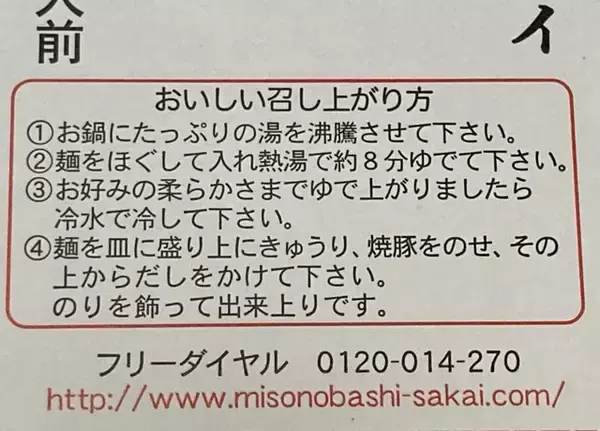 人前
イ
おいしい召し上がり方
①お鍋にたっぷりの湯を沸騰させて下さい。
②麺をほぐして入れ熱湯で約８分ゆでて下さい。
③お好みの柔らかさまでゆで上がりましたら
冷水で冷して下さい。
④麺を皿に盛り上にきゅうり、焼豚をのせ、その
上からだしをかけて下さい。
のりを飾って出来上りです。
フリーダイヤル 0120-014-270
http://www.misonobashi-sakai.com/